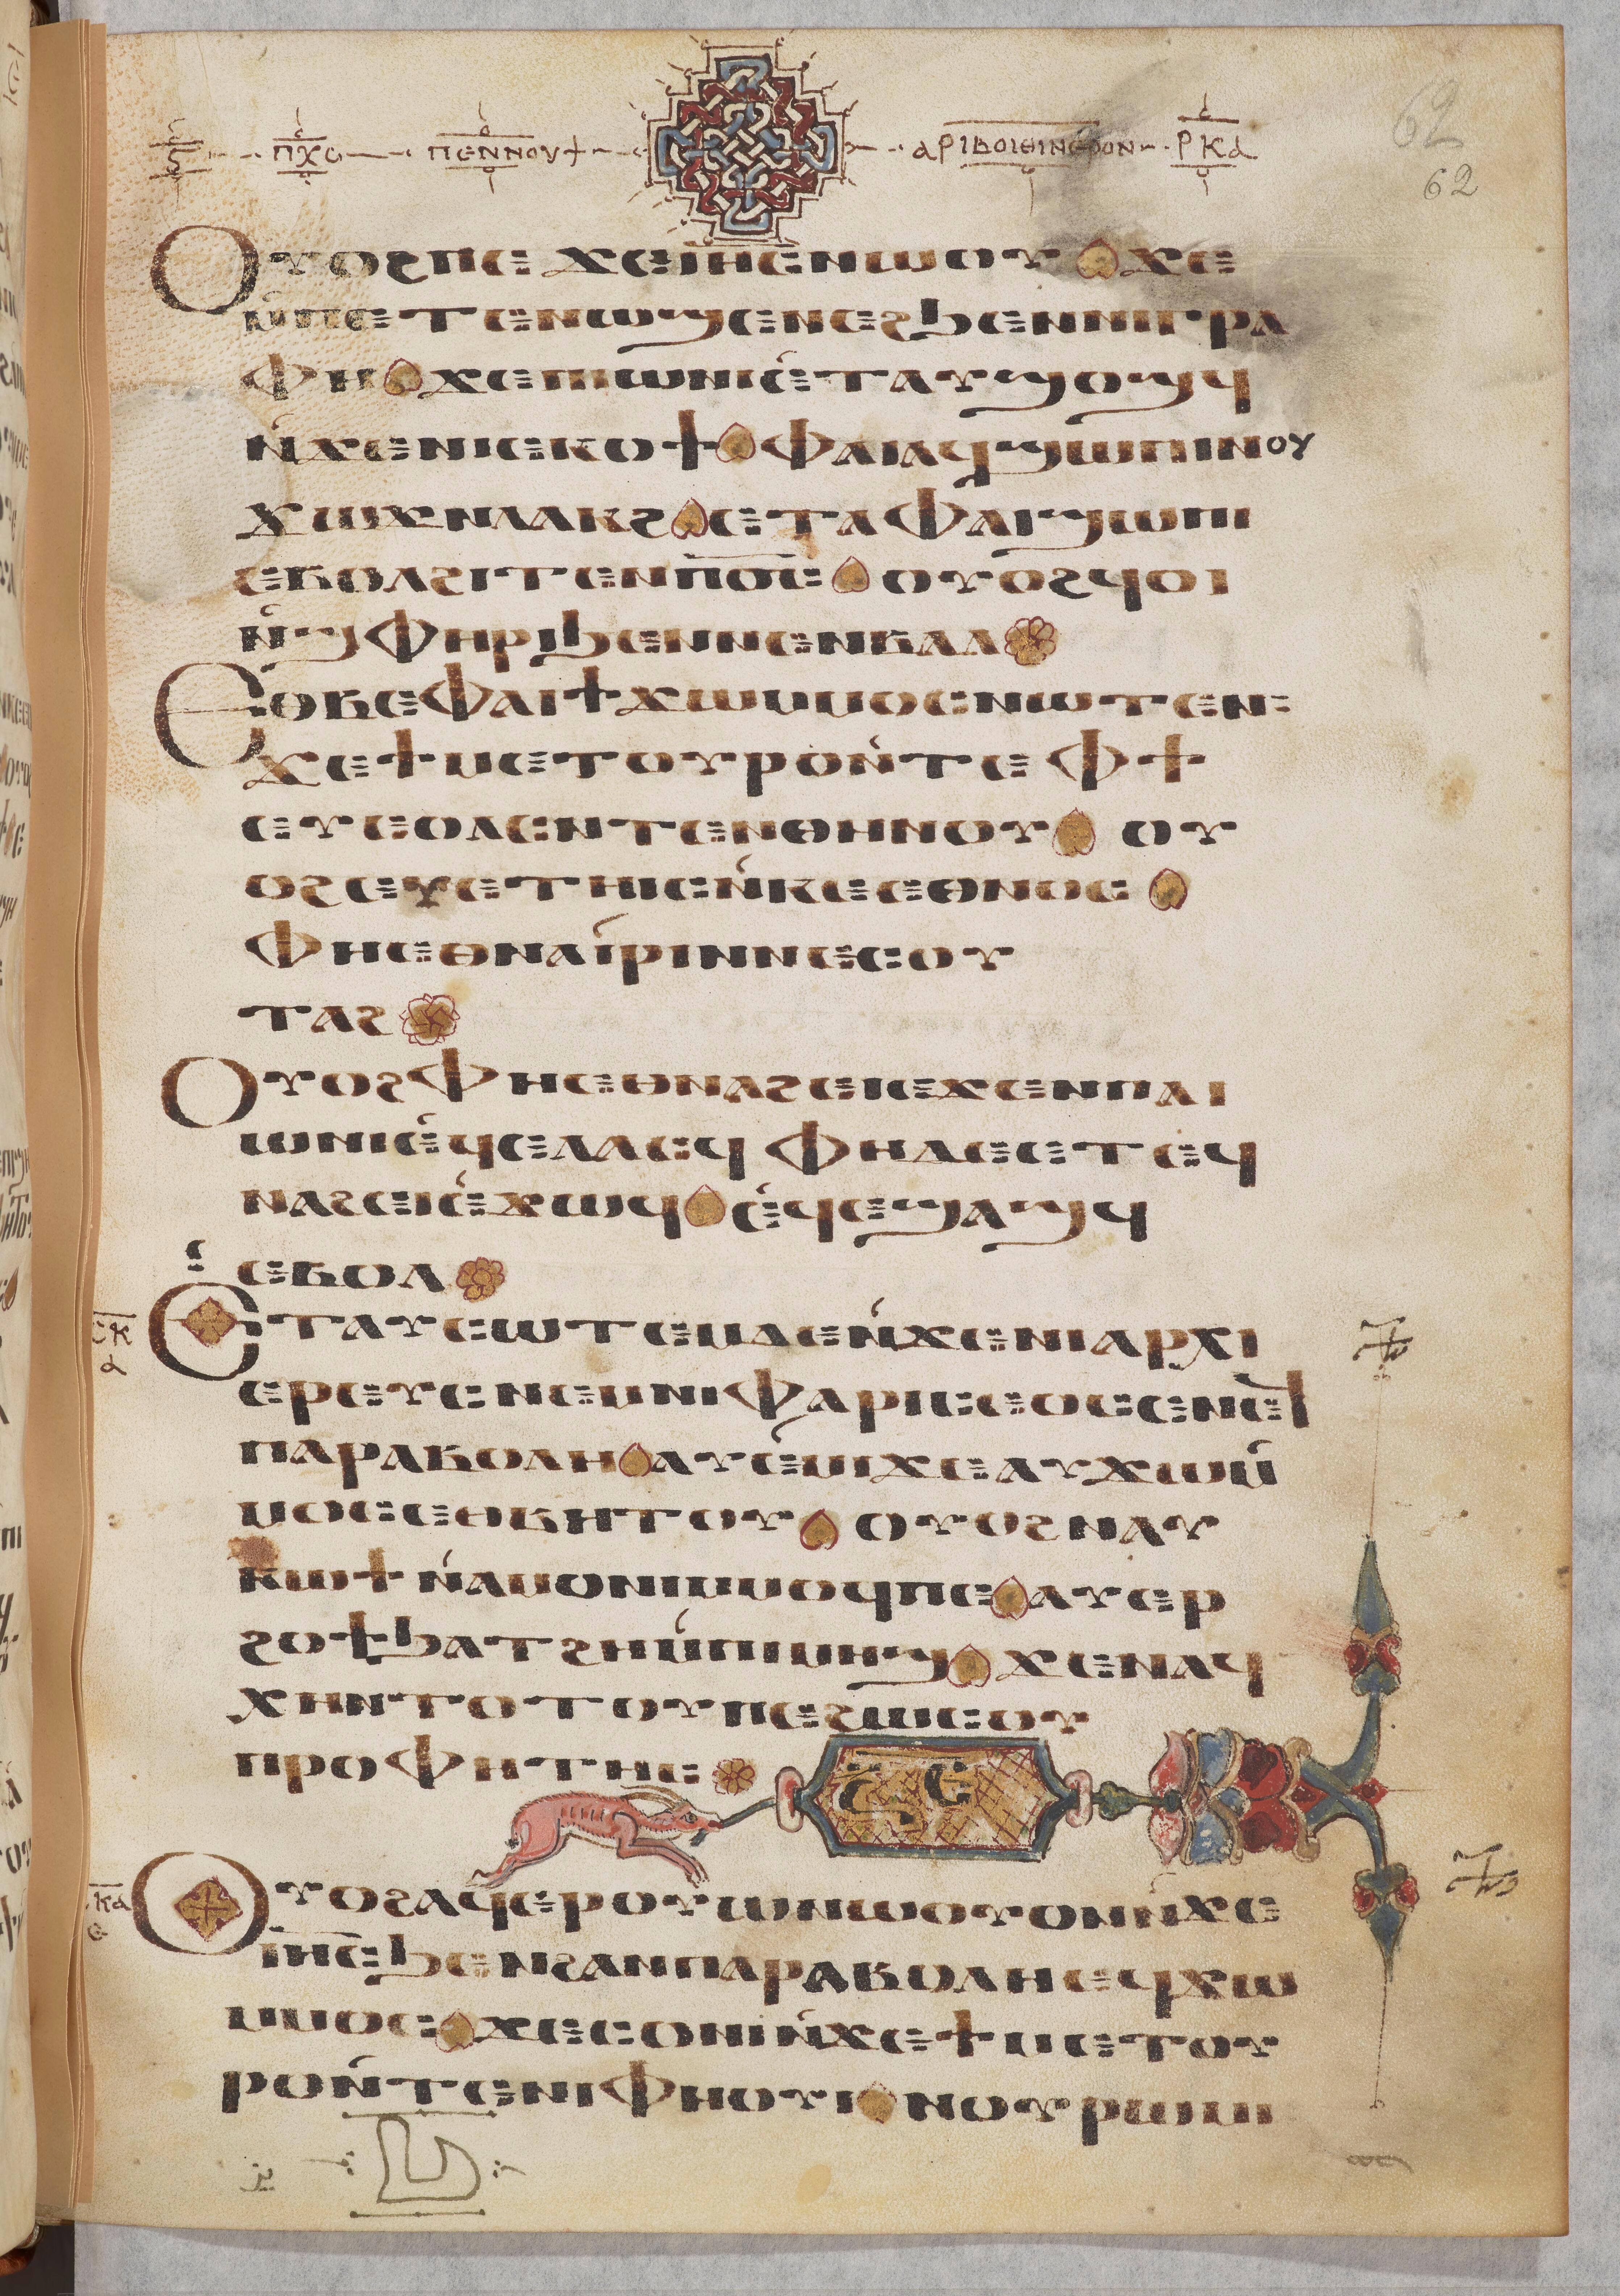 ⲋ ⲠⲬⲤ ⲠⲈⲚⲚⲞⲨϮ ⲀⲢⲒⲂⲞⲒⲐⲒⲚⲈⲢⲞⲚ ⲢⲔⲀ
62
62
ⲞⲨⲞϨⲠⲈ ϪⲈⲒⲎⲤⲚⲰⲞⲨ ϪⲈ
Ⲙ̀ⲠⲈⲦⲈⲚⲰϢⲈⲚⲈϨϦⲈⲚⲚⲒⲄⲢⲀ
ⲪⲎ ϪⲈⲠⲒⲰⲚⲒⲈ̀ⲦⲀⲨϢⲞϢϤ
Ⲛ̀ϪⲈⲚⲒⲈⲔⲞϮ ⲪⲀⲒⲀϤϢⲰⲠⲒⲚⲞⲨ
ϪⲰϪⲚⲖⲀⲔϨ ⲈⲦⲀⲪⲀⲒϢⲰⲠⲒ
ⲈⲂⲞⲖϨⲒⲦⲈⲚⲠⲞ̅Ⲥ̅ ⲞⲨⲞϨϤⲞⲒ
Ⲛ̀ϢⲪⲎⲢⲒϦⲈⲚⲚⲈⲚⲂⲀⲖ
ⲈⲐⲂⲈⲪⲀⲒϮϪⲰⲘⲘⲞⲤⲚⲰⲦⲈⲚ
ϪⲈϮⲘⲈⲦⲞⲨⲢⲞⲚ̀ⲦⲈ ⲪϮ
ⲈⲨⲈⲞⲖⲤⲚⲦⲈⲚⲐⲎⲚⲞⲨ ⲞⲨ
ⲞϨⲈⲨⲈⲦⲎⲒⲤⲚ̀ⲔⲈⲈⲐⲚⲞⲤ
ⲪⲎⲈⲐⲚⲀⲒ̀ⲢⲒⲚⲚⲈⲤⲞⲨ
ⲦⲀϨ
ⲞⲨⲞϨⲪⲎⲈⲐⲚⲀϨⲈⲒⲈϪⲈⲚⲠⲀⲒ
ⲰⲚⲒⲈ̀ϤⲈⲖⲀⲤϤ ⲪⲎⲆⲈⲈⲦⲈϤ
ⲚⲀϨⲈⲒⲈ̀ϪⲰϤ Ⲉ̀ϤⲈϢⲀϢϤ
ⲈⲂⲞⲖ
ⲤⲔ
ⲇ
ⲈⲦⲀⲨⲤⲰⲦⲈⲘⲆⲈⲚ̀ϪⲈⲚⲒⲀⲢⲬⲒ
ⲈⲢⲈⲨⲤⲚⲈⲘⲚⲒⲪⲀⲢⲒⲤⲈⲞⲤⲈⲚⲈϤ
ⲠⲀⲢⲀⲂⲞⲖⲎ ⲀⲨⲈ̀ⲘⲒϪⲈⲀⲨϪⲰⲘ̀
ⲘⲞⲤⲈⲐⲂⲎⲦⲞⲨ ⲞⲨⲞϨⲚⲀⲨ
ⲔⲰϮⲚ̀ⲀⲘⲞⲚⲒⲘⲘⲞϤⲠⲈ ⲀⲨⲈⲢ
ϨⲞϮϦⲀⲦϨⲎⲘ̀ⲠⲒⲘⲎϢ ϪⲈⲚⲀϤ
ⲬⲎⲚⲦⲞⲦⲞⲨⲠⲈϨⲰⲤⲞⲨ
ⲠⲢⲞⲪⲎⲦⲎⲤ
ⲌⲈ
ⲤⲔⲀ
ⲉ
ⲞⲨⲞϨⲀϤⲈⲢⲞⲨⲰⲚⲰⲞⲨⲞⲚⲚ̀ϪⲈ
ⲒⲎ̅Ⲥ̅ϦⲈⲚϨⲀⲚⲠⲀⲢⲀⲂⲞⲖⲎⲈϤϪⲰ
ⲘⲘⲞⲤ ϪⲈⲤⲞⲚⲒⲚ̀ϪⲈϮⲘⲈⲦⲞⲨ
ⲢⲞⲚ̀ⲦⲈⲚⲒⲪⲎⲞⲨⲒ ⲚⲞⲨⲢⲰⲘⲒ